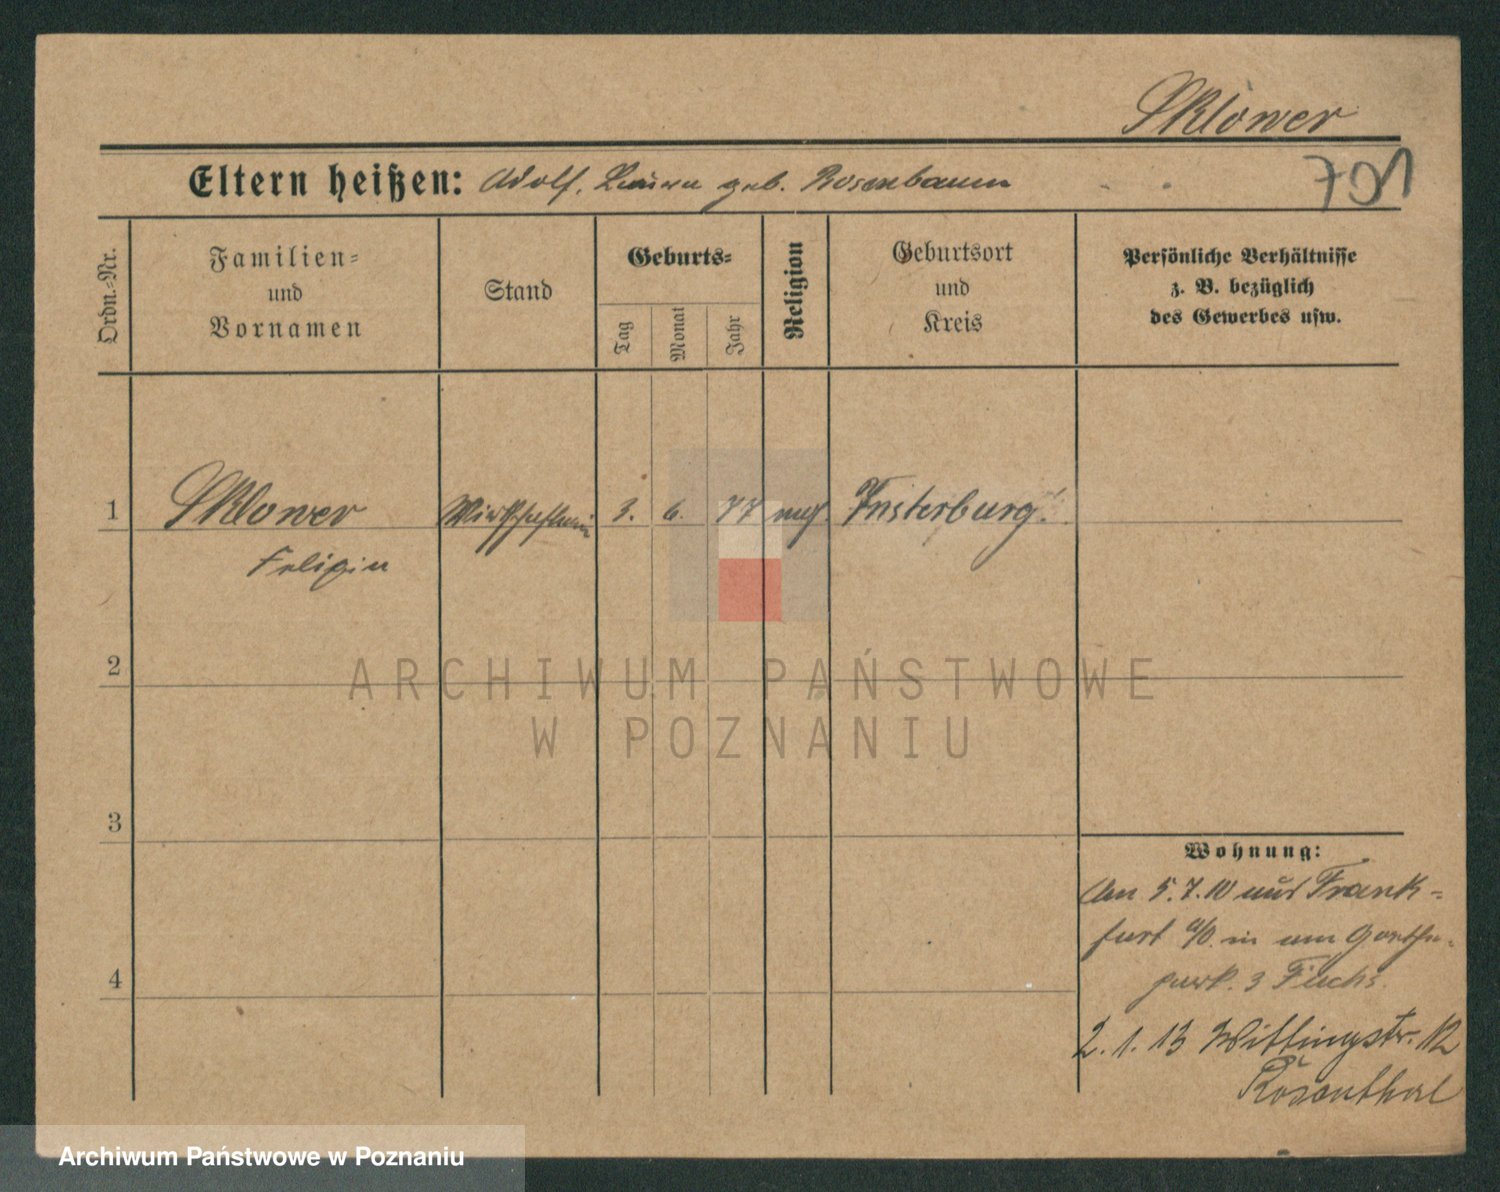 Sklower
701
Eltern heißen: Adolf, Laura geb. Rosenbaum
Ordn.-Nr.
Familien- und Vornamen
Stand
Geburts-
Tag
Monat
Jahr
Religion
Geburtsort und Kreis
Persönliche Verhältnisse
z. B. bezüglich
des Gewerbes usw.
1 Sklower 3. 6. 77 mos. Insterburg
2
3
4
Wohnung:
Am 5.7.10 aus Frank-
furt a/O. in am Goethe-
park. 3 Fuchs.
2.1.13 Wittingstr. 12
Rosenthal
ARCHIWUM PAŃSTWOWE
W POZNANIU
Archiwum Państwowe w Poznaniu